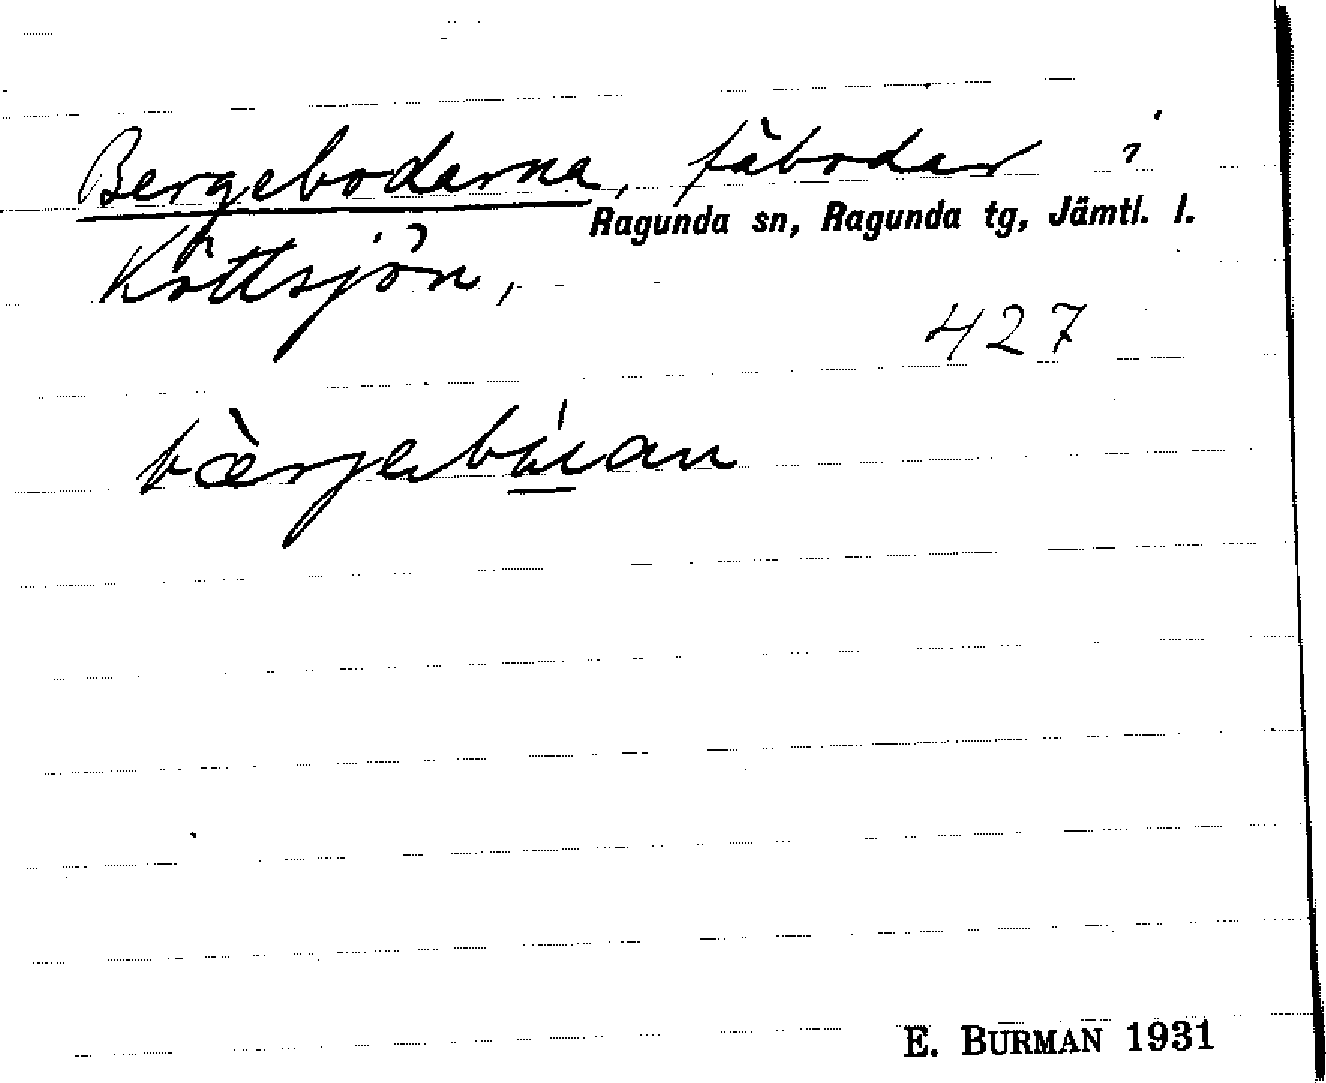 Bergebodarna, fäbodar i
Ragunda sn, Ragunda tg, Jämtl. l.
Köttsjön,
427
bærjebúan
E. BURMAN 1931